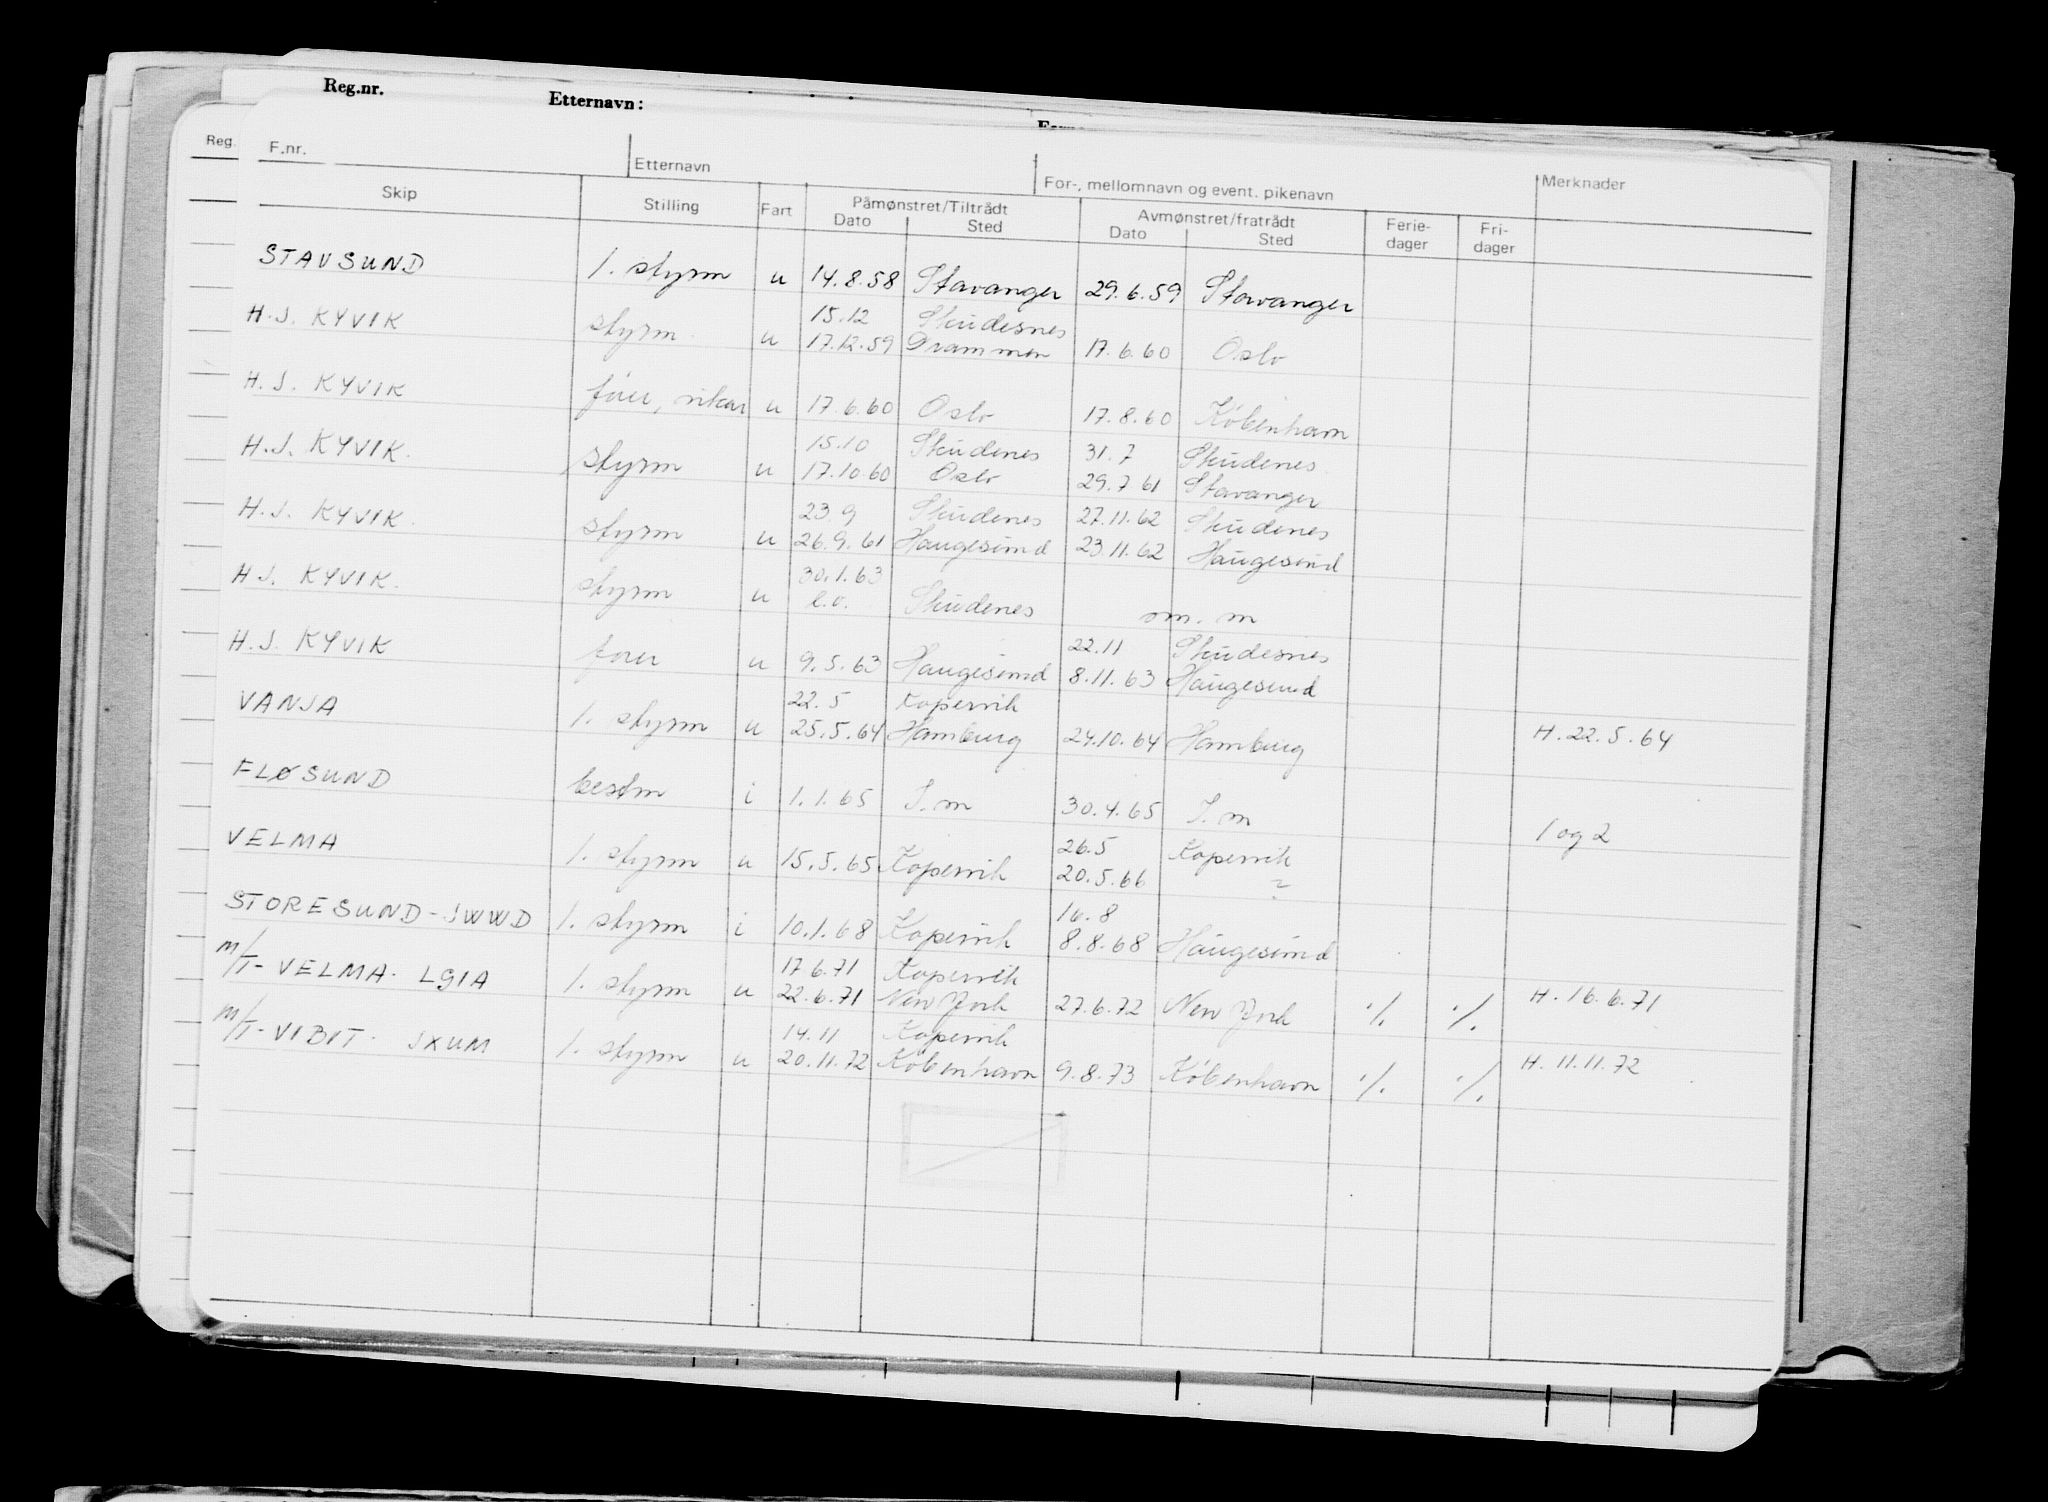 Reg.nr. Etternavn:
Reg. F.nr. Etternavn For-, mellomnavn og event. pikenavn Merknader
Skip Stilling Fart Påmønstret/Tiltrådt Avmønstret/fratrådt Ferie-dager Fri-dager
Dato Sted Dato Sted
STAVSUND 1. styrm u 14.8.58 Stavanger 29.6.59 Stavanger
15.12 Skudesnes
H.J. KYVIK styrm. u 17.12.59 Drammen 17.6.60 Oslo
H.J. KYVIK fører, vikar u 17.6.60 Oslo 17.8.60 København
15.10 Skudenes 31.7 Skudenes
H.J. KYVIK. styrm u 17.10.60 Oslo 29.7 61 Stavanger
23.9 Skudenes 27.11.62 Skudenes
H.J. KYVIK. styrm u 26.9.61 Haugesund 23.11.62 Haugesund
30.1.63
HJ. KYVIK. styrm u l.o. Skudenes om. m
22.11 Skudesnes
H.J. KYVIK fører u 9.5.63 Haugesund 8.11.63 Haugesund
22.5 Kopervik
VANJA 1. styrm u 25.5.64 Hamburg 24.10.64 Hamburg H.22.5.64
FLØSUND bestm i 1.1.65 S.m 30.4.65 S.m 1 og 2
26.5 Kopervik
VELMA 1. styrm u 15.5.65 Kopervik 20.5.66
16.8
STORESUND-JWWD 1. styrm i 10.1.68 Kopervik 8.8.68 Haugesund
17.6.71 Kopervik
M/T-VELMA. LGIA 1. styrm u 22.6.71 New York 27.6.72 New York ./. ./. H.16.6.71
14.11 Kopervik
M/T-VIBIT. JXUM 1. styrm u 20.11.72 København 9.8.73 København ./. ./. H.11.11.72